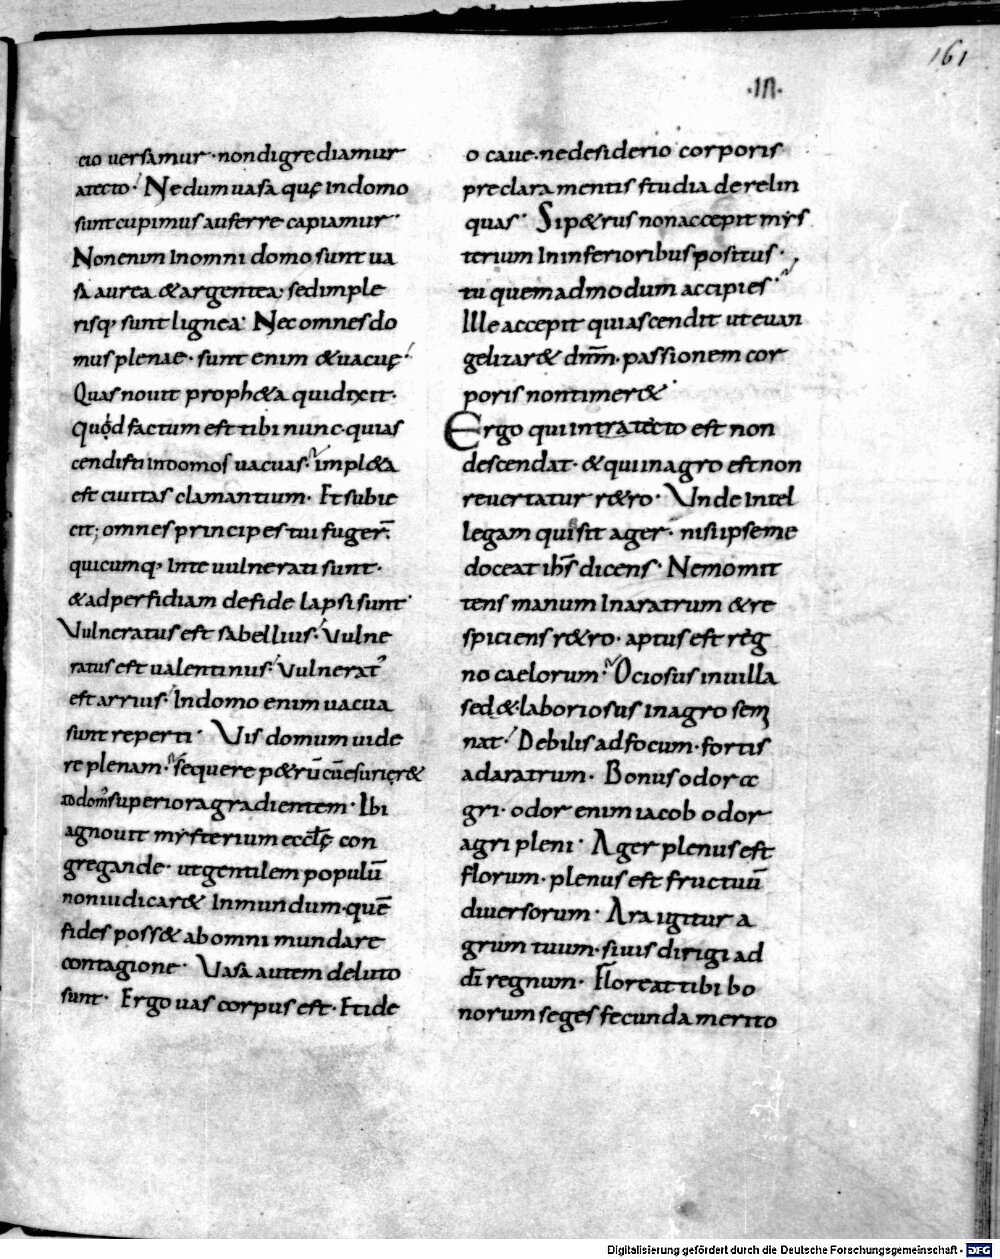 161
·III·
cio uersamur· non digrediamur
atecto· Nedum uasa quę indomo
sunt cupimus auferre capiamur·
Non enim In omni domo sunt ua
sa aurea & argentea; sed imple
risq; sunt lignea· Nec omnes do
mus plenae· sunt enim & uacuę·
Quas nouit proph&a qui dixit·
quod factum est tibi nunc· quias
cendisti indomos uacuas· impl&a
est ciuitas clamantium· Et subie
cit; omnes principes tui fuger̄·
quicumq; Inte uulnerati sunt·
& ad perfidiam de fide lapsi sunt·
Vulneratus est sabellius· Vulne
ratus est ualentinus· Vulnerat᾽
est arrius· Indomo enim uacua
sunt reperti· Vis domum uide
re plenam· sequere p&rū cū esurier&
superiora gradientem· Ibi
agnouit mysterium eccłę con
gregande· ut gentilem populū
non iudicar& Inmundum· quē
fides poss& ab omni mundare
contagione· Vasa autem de luto
sunt· Ergo uas corpus est· Et ide
o caue· ne desiderio corporis
preclara mentis studia derelin
quas· Si p&rus non accepit mys
terium In inferioribus positus·
tu quemadmodum accipies·
Ille accepit quia scendit ut euan
gelizar& dm̄m· passionem cor
poris non timer&·
Ergo qui intra tecto est non
descendat· & qui inagro est non
reuertatur r&ro· Vnde Intel
legam qui sit ager· nisi ipse me
doceat ih̄s dicens· Nemo mit
tens manum In aratrum & re
spiciens r&ro· aptus est reg
no caelorum· Ociosus inuilla
sed& laboriosus inagro semi
nat· Debilis ad focum· fortis
ad aratrum· Bonus odor a
gri· odor enim iacob odor
agri pleni· Ager plenus est
florum· plenus est fructuū
diuersorum· Ara igitur a
grum tuum· si uis dirigi ad
dī regnum· Floreat tibi bo
norum seges fecunda merito
Digitalisierung gefördert durch die Deutsche Forschungsgemeinschaft - DFG